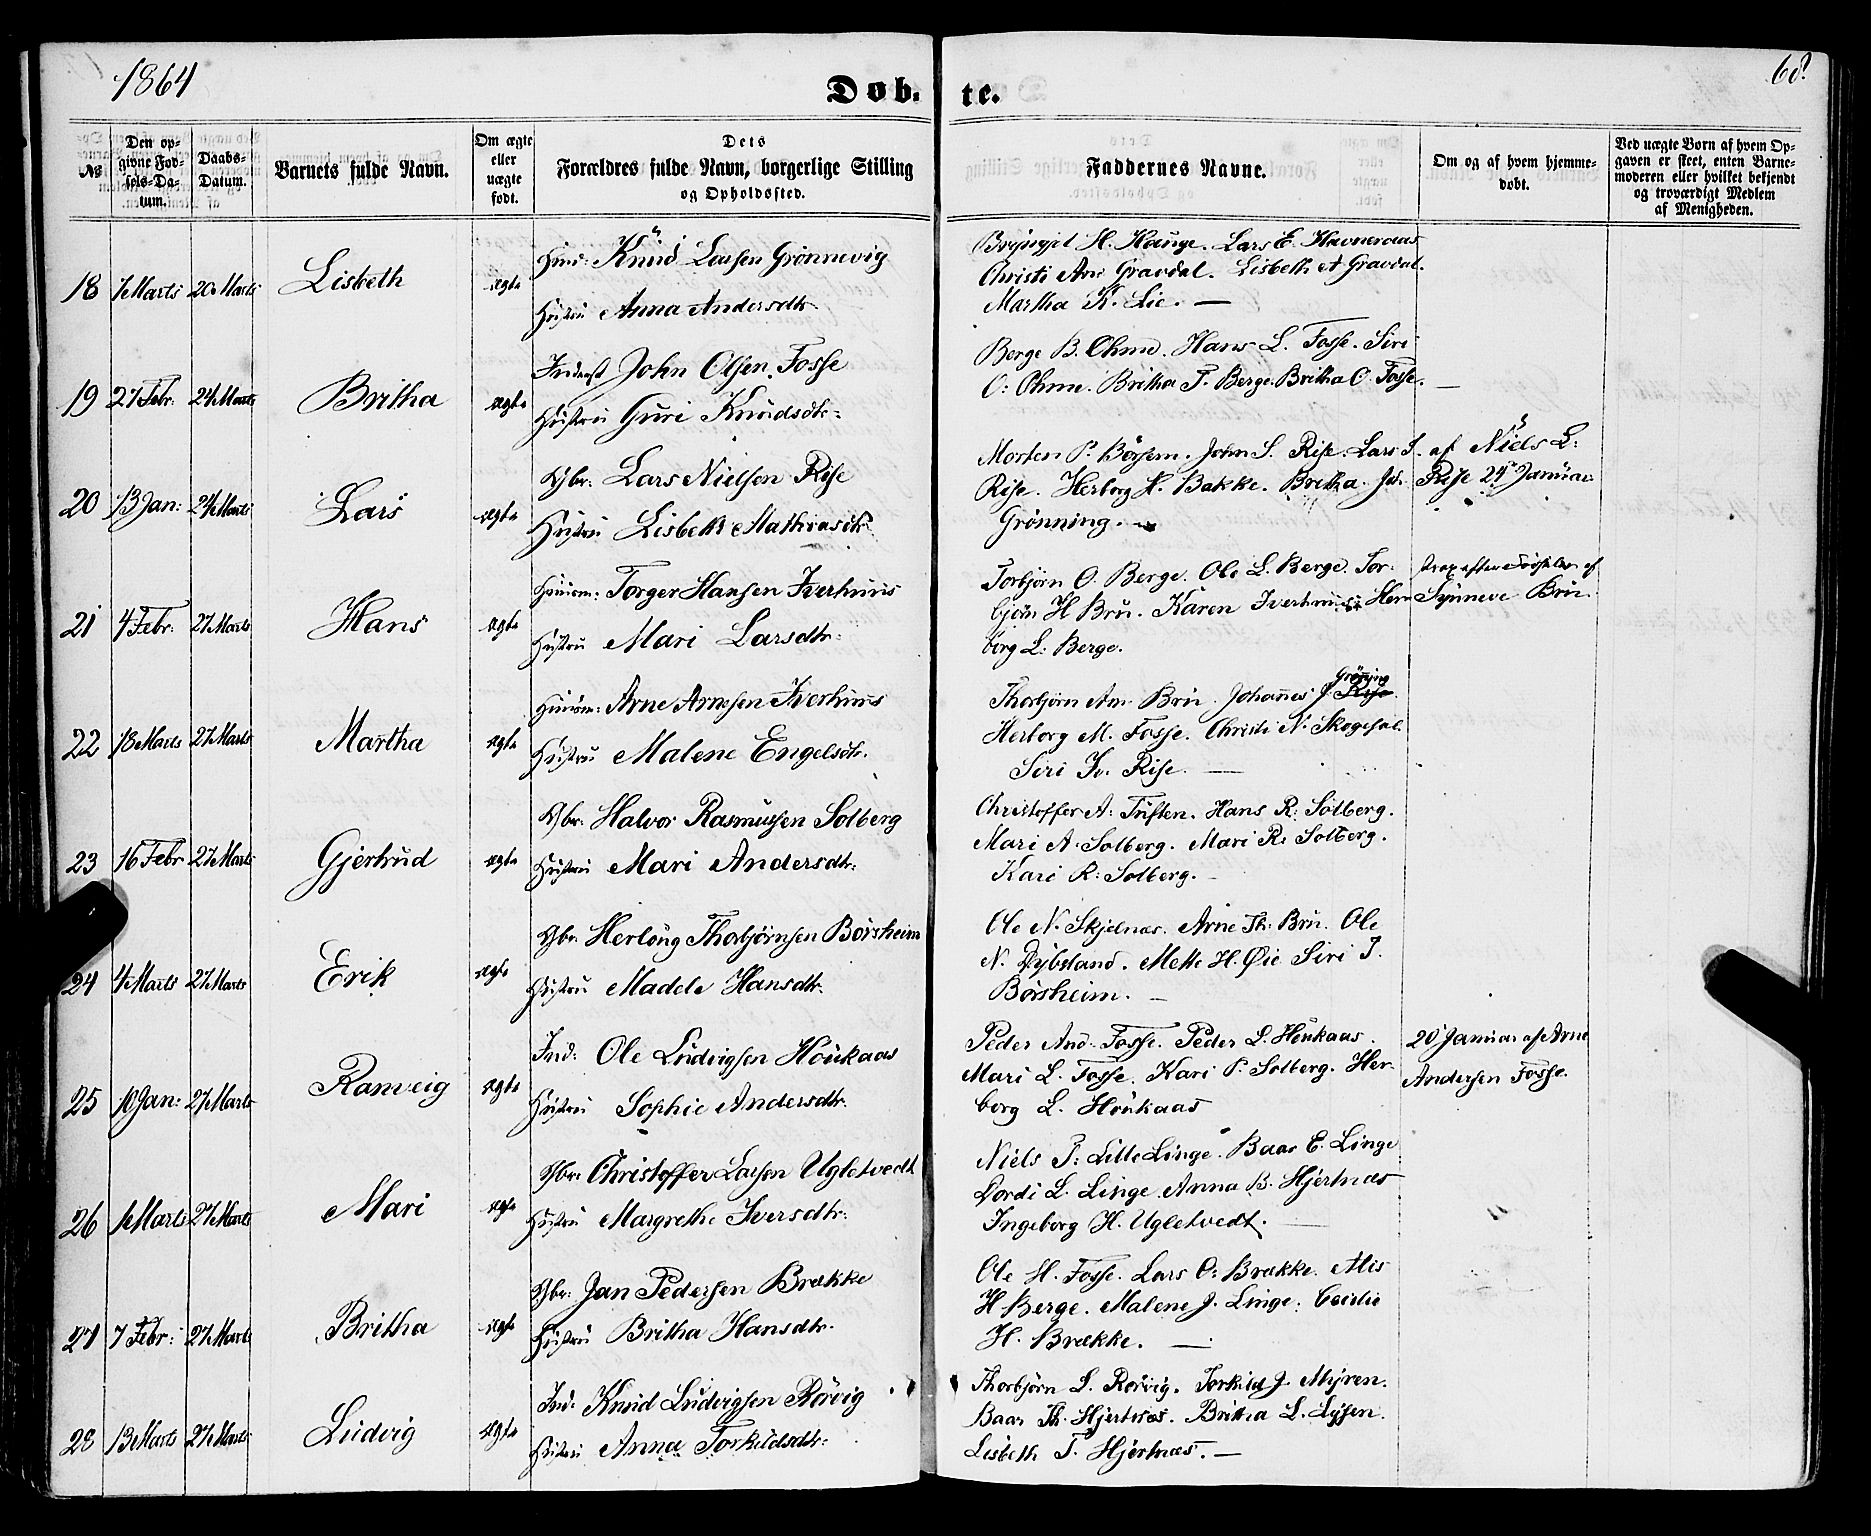 1864
68
Døb. te.
No
Den op-
givne Fød-
sels-Da-
tum.
Daabs-
Datum.
Barnets fulde Navn.
Om ægte
eller
uægte
født.
Dets
Forældres fulde Navn, borgerlige Stilling
og Opholdssted.
Faddernes Navne.
Om og af hvem hjemme-
døbt.
Ved uægte Børn af hvem Op-
gaven er skeet, enten Barne-
moderen eller hvilket bekjendt
og troværdigt Medlem
af Menigheden.
18 7 Marts 20 Marts Lisbeth ægte
Knud Larsen Grønnevig
Hustru Anna Andersdtr.
H. Hauge. Lars E.
Christi Gravdal. Lisbeth A Gravdal.
Martha K. Lie. —
19 27 Febr: 24 Marts Britha ægte
John Olsen Fosse
Hustru Guri Knudsdtr:
Berge B. Ohme. Hans L. Fosse. Siri
O: Ohme. Britha T. Berge. Britha O. Fosse. —
20 13 Jan: 24 Marts Lars ægte
Gbr: Lars Nielsen Rise
Hustru Lisbeth Mathiasdtr.
Morten P. Børsem. John S. Rise. Lars J.
Rise. Herborg H. Bakke. Britha Joh.
Grønning. —
af Niels L:
Rise 24 Januar
21 4 Febr: 27 Marts Hans ægte
Huusm: Torger Hansen Iverhuus
Hustru Mari Larsdtr:
Torbjørn O. Berge. Ole L. Berge. Tor-
bjørn H Bru. Karen Iverhuus. Her-
borg L. Berge.
strax efter Fødselen af
Synneve Bru.
22 18 Marts 27 Marts Martha ægte
Huusm: Arne Arnesen Iverhuus
Hustru Malene Engelsdtr.
Thorbjørn Am. Bru. Johannes J. Rise.
Grøning
Herborg M. Fosse. Christi N. Skogseid.
Siri Iv. Rise. —
23 16 Febr 27 Marts Gjertrud ægte
Gbr: Halvor Rasmussen Solberg
Hustru Mari Andersdtr:
Christoffer A: Tuften. Hans R: Solberg.
Mari A. Solberg. Mari R. Solberg.
Kari R: Solberg. —
24 4 Marts 27 Marts Erik ægte
Gbr: Herlaug Thorbjørnsen Børsheim
Hustru Madele Hansdtr.
Ole N. Skjelnæs. Arne Th: Bru. Ole
N. Dybsland. Mette H. Øie Siri J.
Børsheim. —
25 10 Jan: 27 Marts Ranveig ægte
Ind: Ole Ludvigsen Houkaas
Hustru Sophie Andersdtr.
Peder And. Fosse. Peder L. Houkaas.
Mari L. Fosse. Kari P. Solberg. Her-
borg L. Houkaas
20 Januar af Arne
Andersen Fosse.
26 1 Marts 27 Marts Mari ægte
Gbr: Christoffer Larsen Ugletvedt
Hustru Margrethe Iversdtr:
Niels J: Lille Linge. Baar E. Linge
Dordi L. Linge. Anna B. Hjertnæs
Ingeborg H. Ugletvedt. —
27 7 Febr: 27 Marts Britha ægte
Gbr: Jan Pedersen Brække
Hustru Britha Hansdtr.
Ole H. Fosse. Lars O: Brække. Alis
H Berge. Malene J. Linge.
H. Brække. —
28 13 Marts 27 Marts Ludvig ægte
Ind: Knud Ludvigsen Rørvig
Hustru Anna Torkildsdtr:
Thorbjørn L. Rørvig. Torkild J. Myren.
Baar Th. Hjertnæs. Britha L. Lyssen.
Lisbeth T. Hjertnæs. —